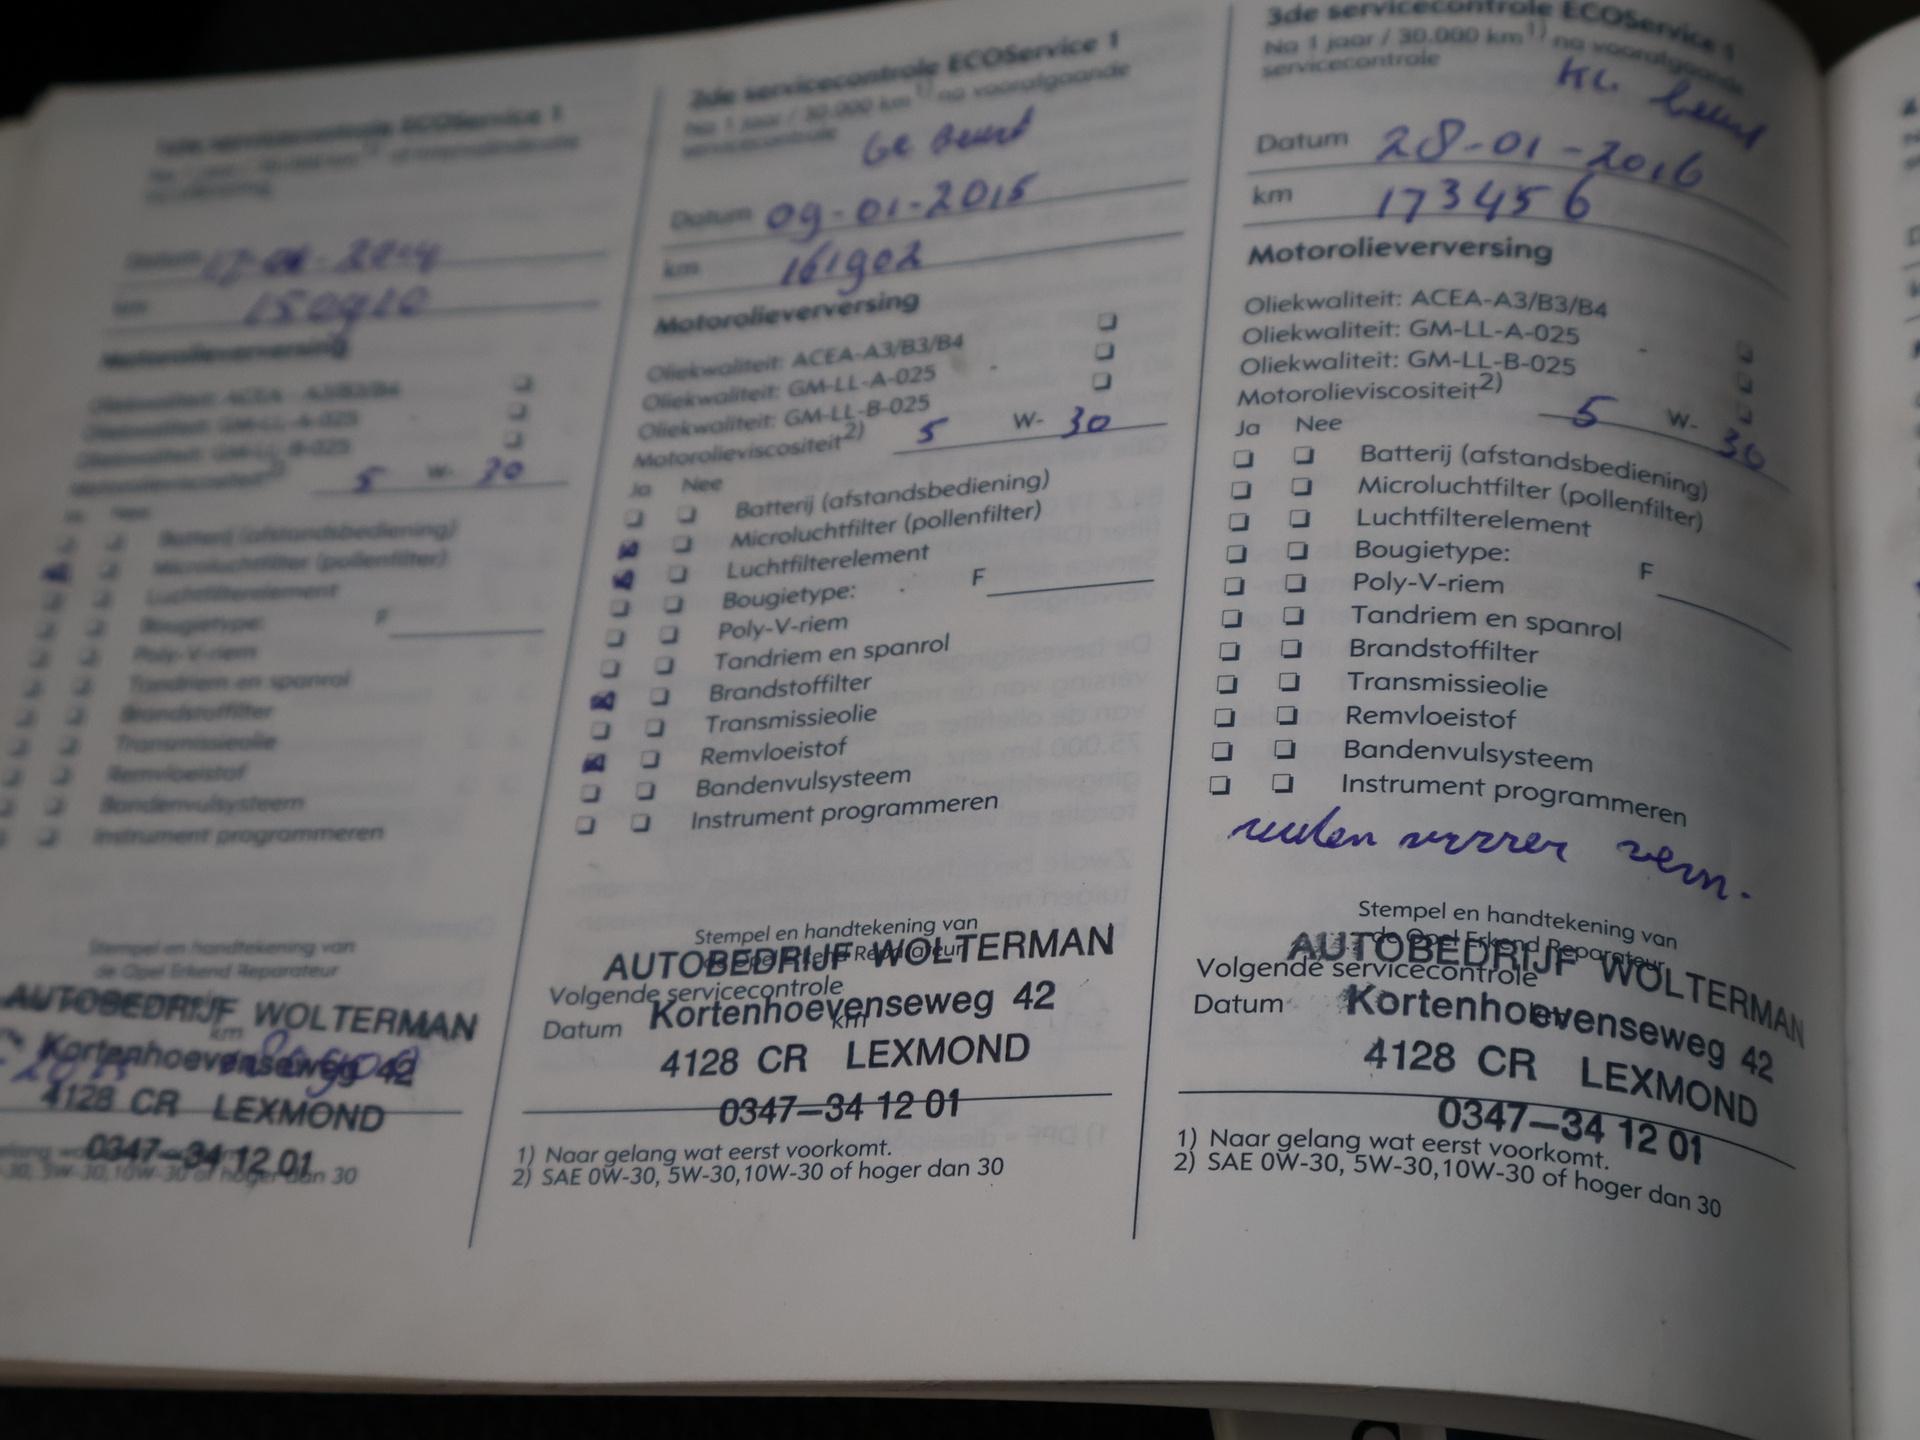 servicecontrole ECOService 1
150910
Motorolieverversing
Oliekwaliteit: ACEA - A3/B3/B4
Oliekwaliteit: GM-LL-A-025
Oliekwaliteit: GM-LL-B-025
Motorolieviscositeit2) 5 W- 30
Ja Nee
Batterij (afstandsbediening)
Microluchtfilter (pollenfilter)
Luchtfilterelement
Bougietype: F
Poly-V-riem
Tandriem en spanrol
Brandstoffilter
Transmissieolie
Remvloeistof
Bandenvulsysteem
Instrument programmeren
Stempel en handtekening van
de Opel Erkend Reparateur
AUTOBEDRIJF WOLTERMAN
km
Kortenhoevenseweg 42
4128 CR LEXMOND
0347-34 12 01
-30, 5W-30,10W-30 of hoger dan 30
2de servicecontrole ECOService 1
Na 1 jaar / 30.000 km1) na voorafgaande
servicecontrole
Gr Beurt
Datum 09-01-2015
km 161902
Motorolieverversing
Oliekwaliteit: ACEA-A3/B3/B4
Oliekwaliteit: GM-LL-A-025
Oliekwaliteit: GM-LL-B-025
Motorolieviscositeit2) 5 W- 30
Ja Nee
Batterij (afstandsbediening)
Microluchtfilter (pollenfilter)
Luchtfilterelement
Bougietype: F
Poly-V-riem
Tandriem en spanrol
Brandstoffilter
Transmissieolie
Remvloeistof
Bandenvulsysteem
Instrument programmeren
Stempel en handtekening van
de Opel Erkend Reparateur
AUTOBEDRIJF WOLTERMAN
Volgende servicecontrole
Datum km
Kortenhoevenseweg 42
4128 CR LEXMOND
0347-34 12 01
1) Naar gelang wat eerst voorkomt.
2) SAE 0W-30, 5W-30,10W-30 of hoger dan 30
3de servicecontrole ECOService 1
Na 1 jaar / 30.000 km1) na voorafgaande
servicecontrole
KL beurt
Datum 28-01-2016
km 173456
Motorolieverversing
Oliekwaliteit: ACEA-A3/B3/B4
Oliekwaliteit: GM-LL-A-025
Oliekwaliteit: GM-LL-B-025
Motorolieviscositeit2) 5 W- 30
Ja Nee
Batterij (afstandsbediening)
Microluchtfilter (pollenfilter)
Luchtfilterelement
Bougietype: F
Poly-V-riem
Tandriem en spanrol
Brandstoffilter
Transmissieolie
Remvloeistof
Bandenvulsysteem
Instrument programmeren
Stempel en handtekening van
de Opel Erkend Reparateur
AUTOBEDRIJF WOLTERMAN
Volgende servicecontrole
Datum
Kortenhoevenseweg 42
4128 CR LEXMOND
0347-34 12 01
1) Naar gelang wat eerst voorkomt.
2) SAE 0W-30, 5W-30,10W-30 of hoger dan 30